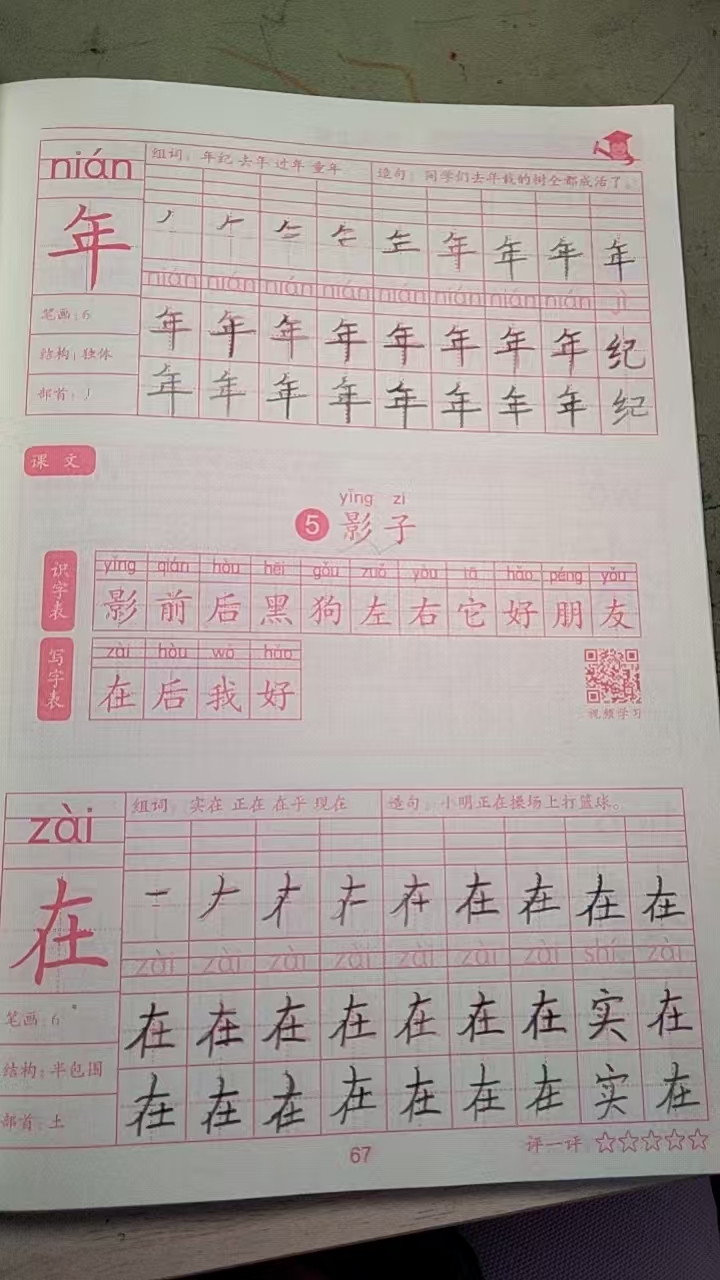 nián 组词：年纪 去年 过年 童年 造句：同学们去年栽的树全都成活了。
年 年 年 年 年
nián nián nián nián nián nián nián nián jì
笔画：6 年 年 年 年 年 年 年 年 纪
结构：独体
部首：丿 年 年 年 年 年 年 年 年 纪
课文
yǐng zi
5 影子
yǐng qián hòu hēi gǒu zuǒ yòu tā hǎo péng yǒu
识字表 影 前 后 黑 狗 左 右 它 好 朋 友
zài hòu wǒ hǎo
写字表 在 后 我 好
视频学习
zài 组词：实在 正在 在乎 现在 造句：小明正在操场上打篮球。
在 一 在 在 在 在 在
zài zài zài zài zài zài zài shí zài
笔画：6 在 在 在 在 在 在 在 实 在
结构：半包围
部首：土 在 在 在 在 在 在 在 实 在
67 评一评 ☆☆☆☆☆